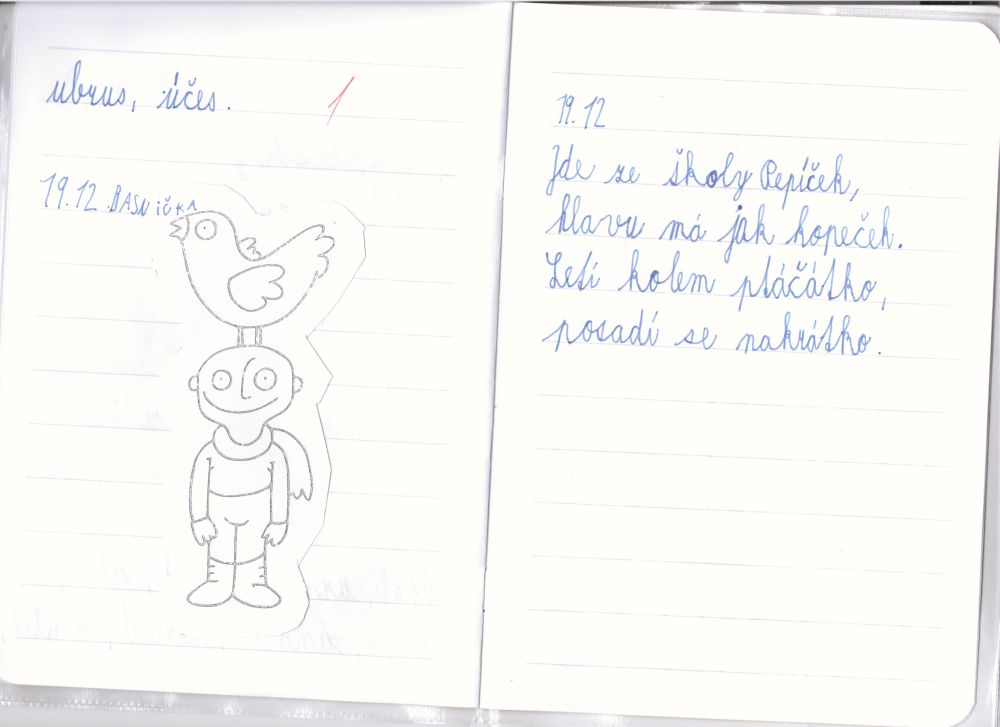 ubrus, účes. 1
19.12 BASNIČKA
19.12
Jde ze školy Pepíček,
hlavu má jak kopeček.
Letí kolem ptáčátko,
posadí se nakrátko.